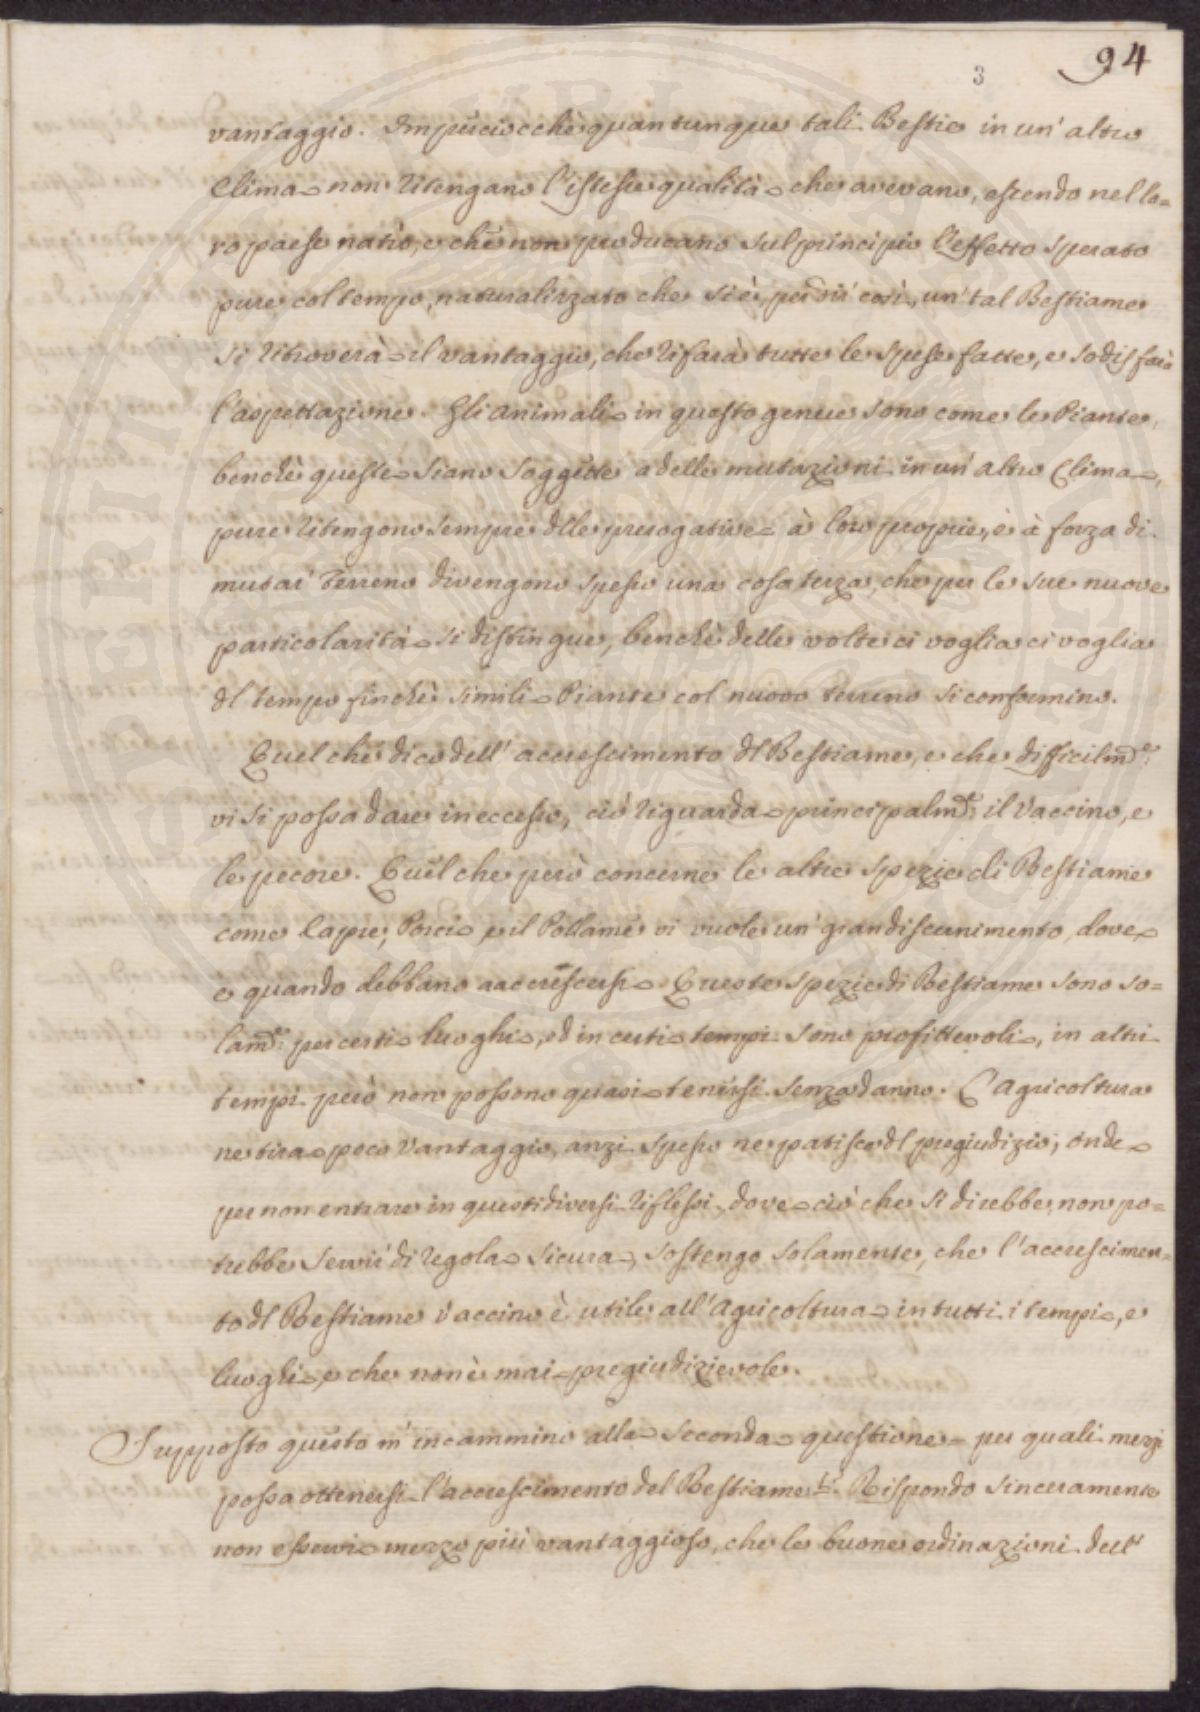 94
3
vantaggio. Imperciocchè quantunque tali Bestie in un' altro
Clima non ritengano l'istesse qualità che avevano, essendo nel lo=
ro paese natìo, e che non producano sul principio l'effetto sperato
pure col tempo, naturalizzato che si è, per dir così, un' tal Bestiame
si ritroverà il vantaggio, che rifarà tutte le spese fatte, e sodisfarà
l'aspettazione. Gli animali in questo genere sono come le Piante,
benchè queste siano soggette a delle mutazioni in un' altro Clima,
pure ritengono sempre delle prerogative à loro proprie, è à forza di
mutar' Terreno divengono spesso una cosa terza, che per le sue nuove
particolarità si distingue, benchè delle volte ci voglia ci voglia
del tempo finchè simili Piante col nuovo terreno si conformino.
Quel che dico dell' accrescimento del Bestiame, e che difficilmte:
vi si possa dare in eccesso, ciò riguarda principalmte: il Vaccino, e
le pecore. Quel che però concerne le altre spezie di Bestiame
come Capre, Porci e il Pollame vi vuole un' gran discernimento, dove
e quando debbano aaccrescersi. Queste spezie di Bestiame sono so=
lamte: per certi luoghi, ed in certi tempi sono profittevoli, in altri
tempi però non possono quasi tenersi senza danno. L'Agricoltura
ne tira poco vantaggio, anzi spesso ne patisce del pregiudizio; onde
per non entrare in questi diversi riflessi, dove ciò che si direbbe, non po=
trebbe servir' di regola sicura, sostengo solamente, che l'accrescimen=
to del Bestiame vaccino è utile all'Agricoltura in tutti i tempi, e
luoghi, e che non è mai pregiudizievole.
Supposto questo m' incammino alla seconda questione = per quali mezzi
possa ottenersi l'accrescimento del Bestiame =. Rispondo sinceramente
non esservi mezzo più vantaggioso, che le buone ordinazioni dell'